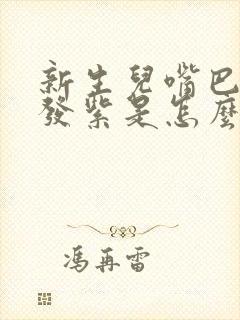 新生兒嘴巴
發紫是怎麼
馮再雷